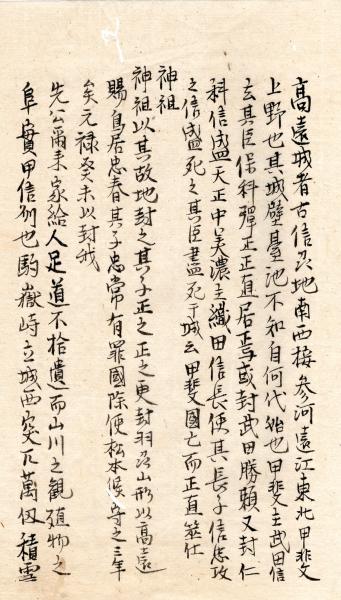 高遠城者古信召地南西接參河遠江東北甲斐
上野也其城壁臺池不知自何代始也甲斐主武田信
玄其臣保科彈正正直居焉或封武田勝賴又封仁
科信盛天正中美濃主織田信長使其長子信忠攻
之信盛死之其臣盡死于城云甲斐國亡而正直筮仕
神祖
神祖以其故地封之其子正之正之更封羽召山形以高遠
賜鳥居忠春其子忠常有罪國除使松本候守之三年
矣元禄癸未以封我
先公爾来家給人足道不拾遺而山川之觀殖物之
阜實甲信列也駒嶽峙立城西突兀萬仭積雪